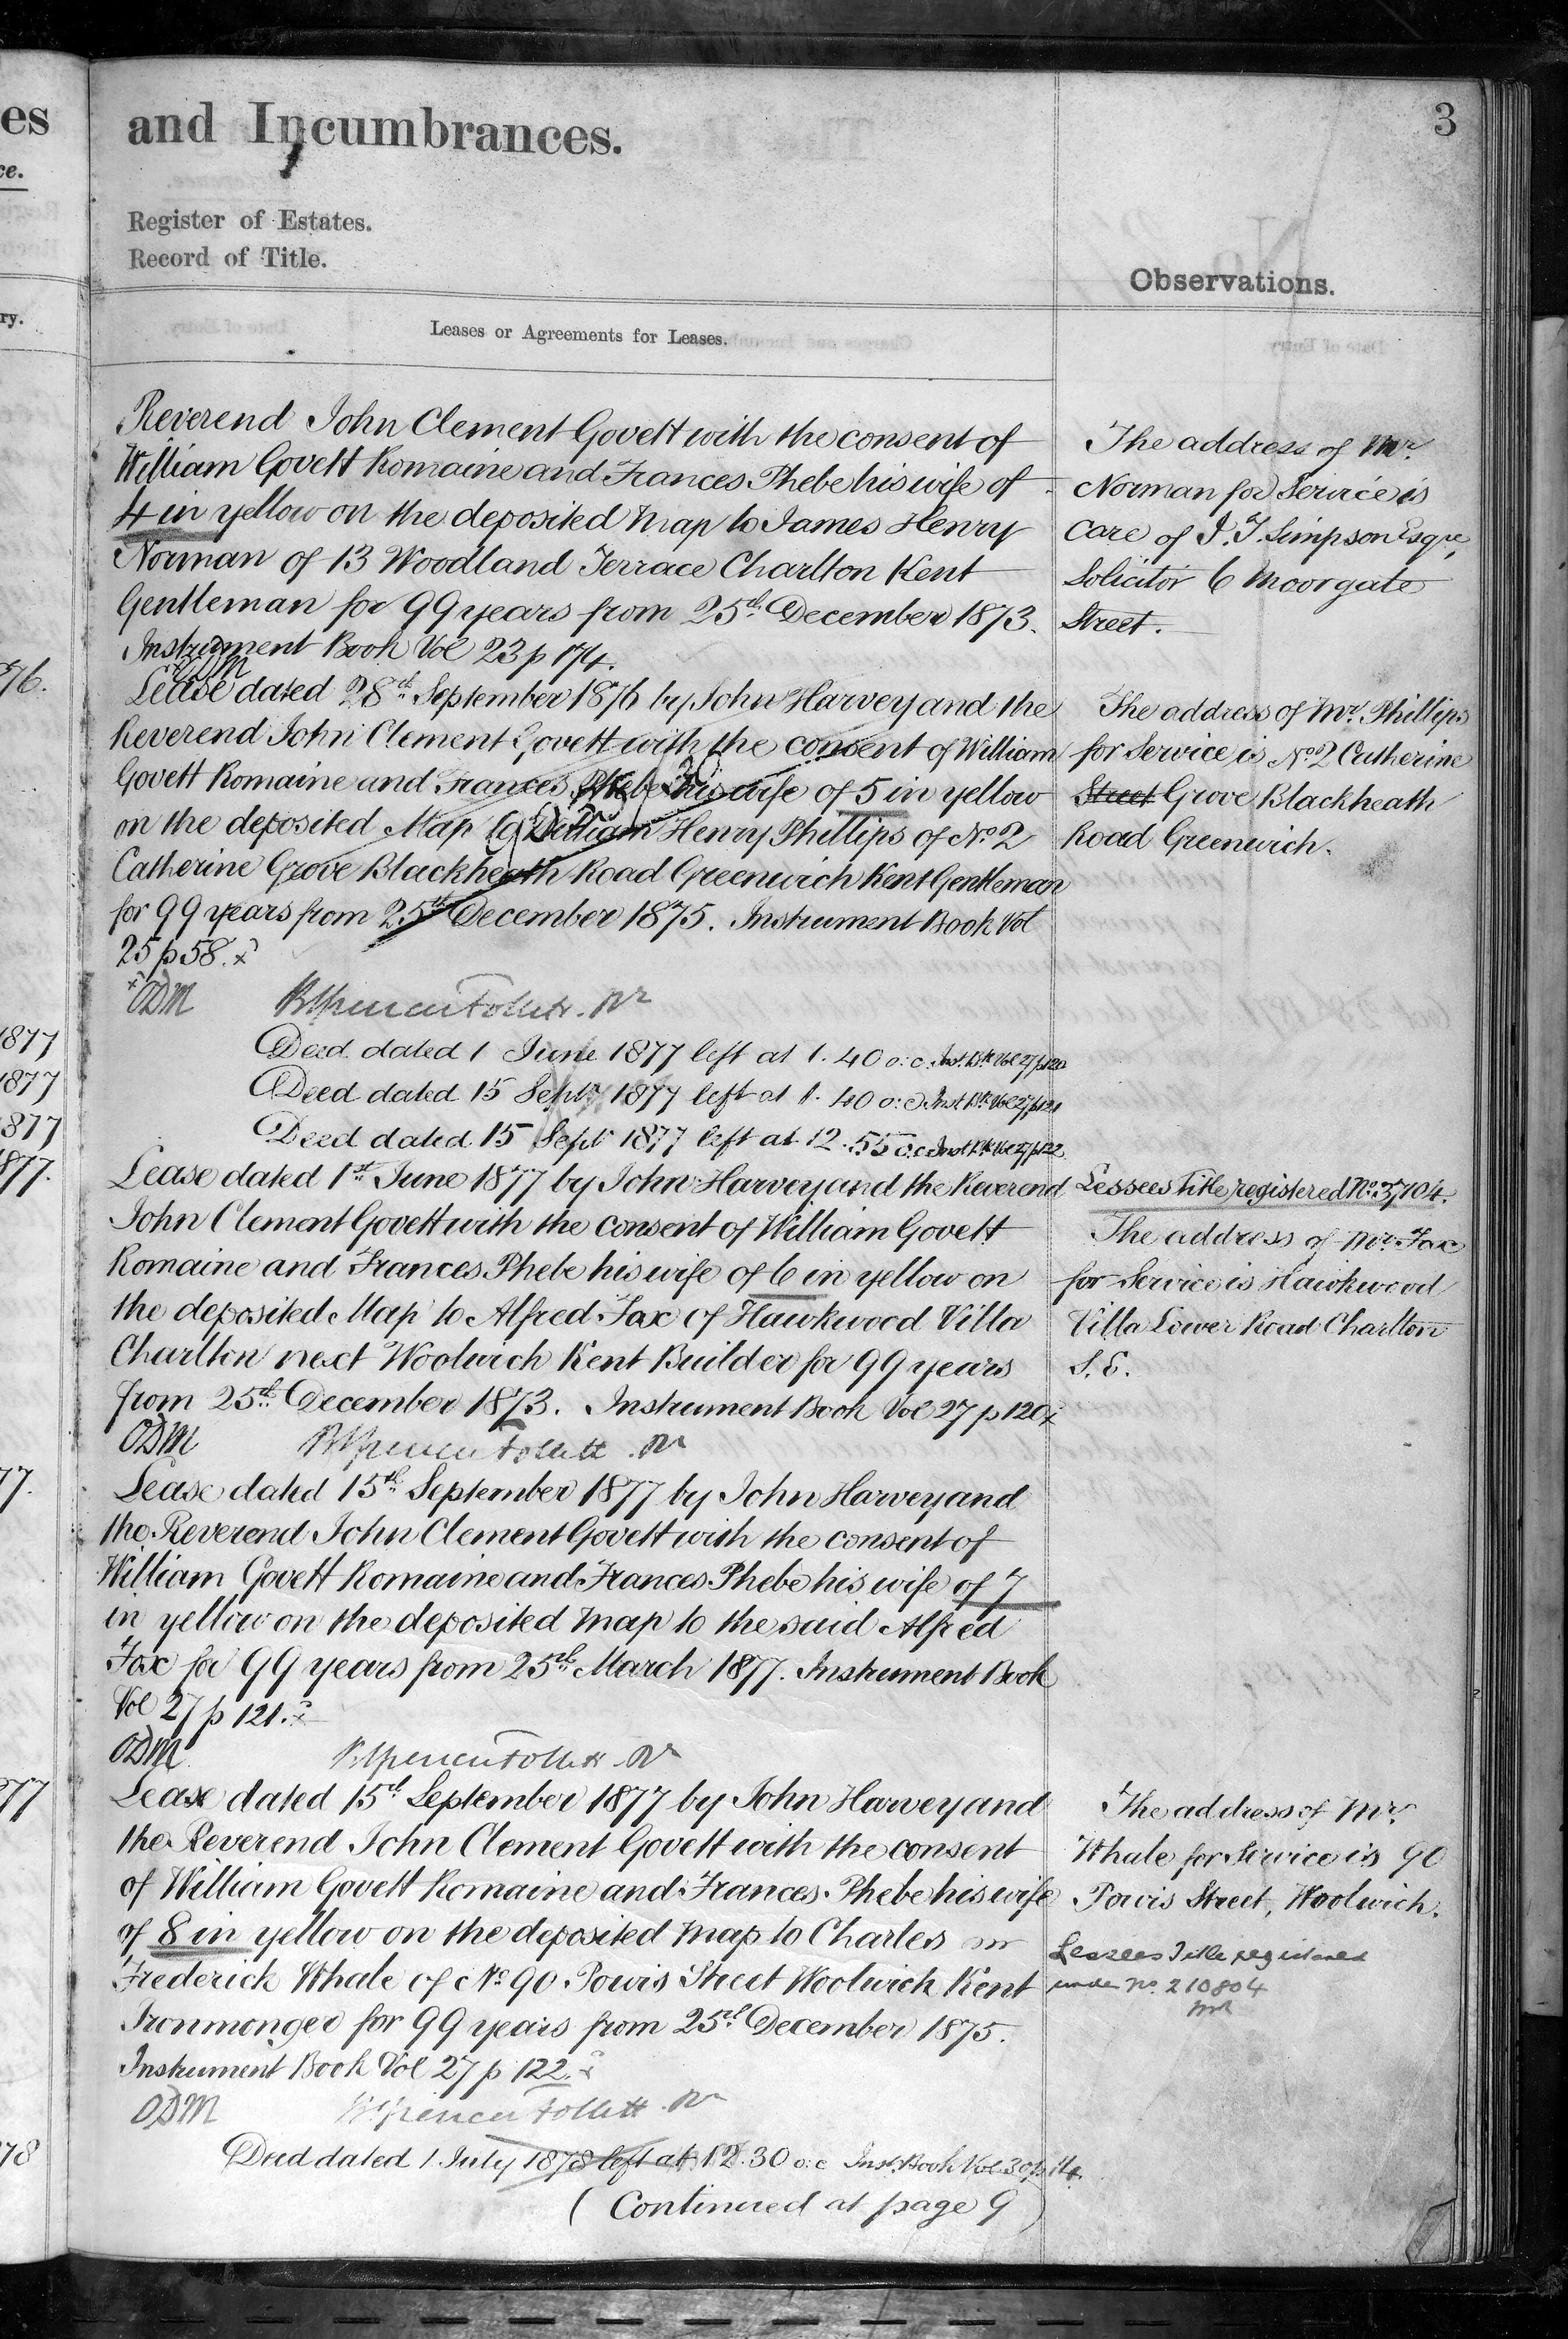 es
ce.
ry.
76.
1877
1877
1877
1877.
77.
77
78
and Incumbrances.
3
Register of Estates.
Record of Title.
Observations.
Leases or Agreements for Leases.
Reverend John Clement Govett with the consent of
William Govett Romaine and Frances Phebe his wife of
4 in yellow on the deposited Map to James Henry
Norman of 13 Woodland Terrace Charlton Kent
Gentleman for 99 years from 25th December 1873.
Instrument Book Vol 23 p 174.
The address of Mr.
Norman for Service is
Care of J. T. Simpson Esqre,
Solicitor 6 Moorgate
Street.
ODM
Lease dated 28th September 1876 by John Harvey and the
Reverend John Clement Govett with the consent of William
Govett Romaine and Frances Phebe his wife of 5 in yellow
on the deposited Map to William Henry Phillips of No. 2
Catherine Grove Blackheath Road Greenwich Kent Gentleman
for 99 years from 25th December 1875. Instrument Book Vol
25 p 58. x
The address of Mr. Phillips
for Service is No. 2 Catherine
Street Grove Blackheath
Road Greenwich.
x ODM B Spencer Follett. Rr
Deed dated 1 June 1877 left at 1. 40 o:c. Inst. Bk Vol 27 p 120
Deed dated 15 Septr 1877 left at 1. 40 o:c Inst Bk Vol 27 p 121
Deed dated 15 Septr 1877 left at 12. 55 o:c Inst Bk Vol 27 p 122
Lease dated 1st June 1877 by John Harvey and the Reverend
John Clement Govett with the consent of William Govett
Romaine and Frances Phebe his wife of 6 in yellow on
the deposited Map to Alfred Fox of Hawkwood Villa
Charlton next Woolwich Kent Builder for 99 years
from 25th December 1873. Instrument Book Vol 27 p 120 x
Lessees title registered No.
The address of Mr. Fox
for Service is Hawkwood
Villa Lower Road Charlton
S. E.
ODM B Spencer Follett. Rr
Lease dated 15th September 1877 by John Harvey and
the Reverend John Clement Govett with the consent of
William Govett Romaine and Frances Phebe his wife of 7
in yellow on the deposited Map to the said Alfred
Fox for 99 years from 25th March 1877. Instrument Book
Vol 27 p 121. x
ODM B Spencer Follett. Rr
Lease dated 15th September 1877 by John Harvey and
the Reverend John Clement Govett with the consent
of William Govett Romaine and Frances Phebe his wife
of 8 in yellow on the deposited Map to Charles
Frederick Whale of No. 90 Powis Street Woolwich Kent
Ironmonger for 99 years from 25th December 1875.
Instrument Book Vol 27 p 122. x
The address of Mr.
Whale for Service is 90
Powis Street, Woolwich.
Lessees Title registered
under No. 210804
ODM B Spencer Follett. Rr
Deed dated 1 July 1878 left at 12. 30 o:c Inst. Book Vol 30 p 114.
( Continued at page 9 )